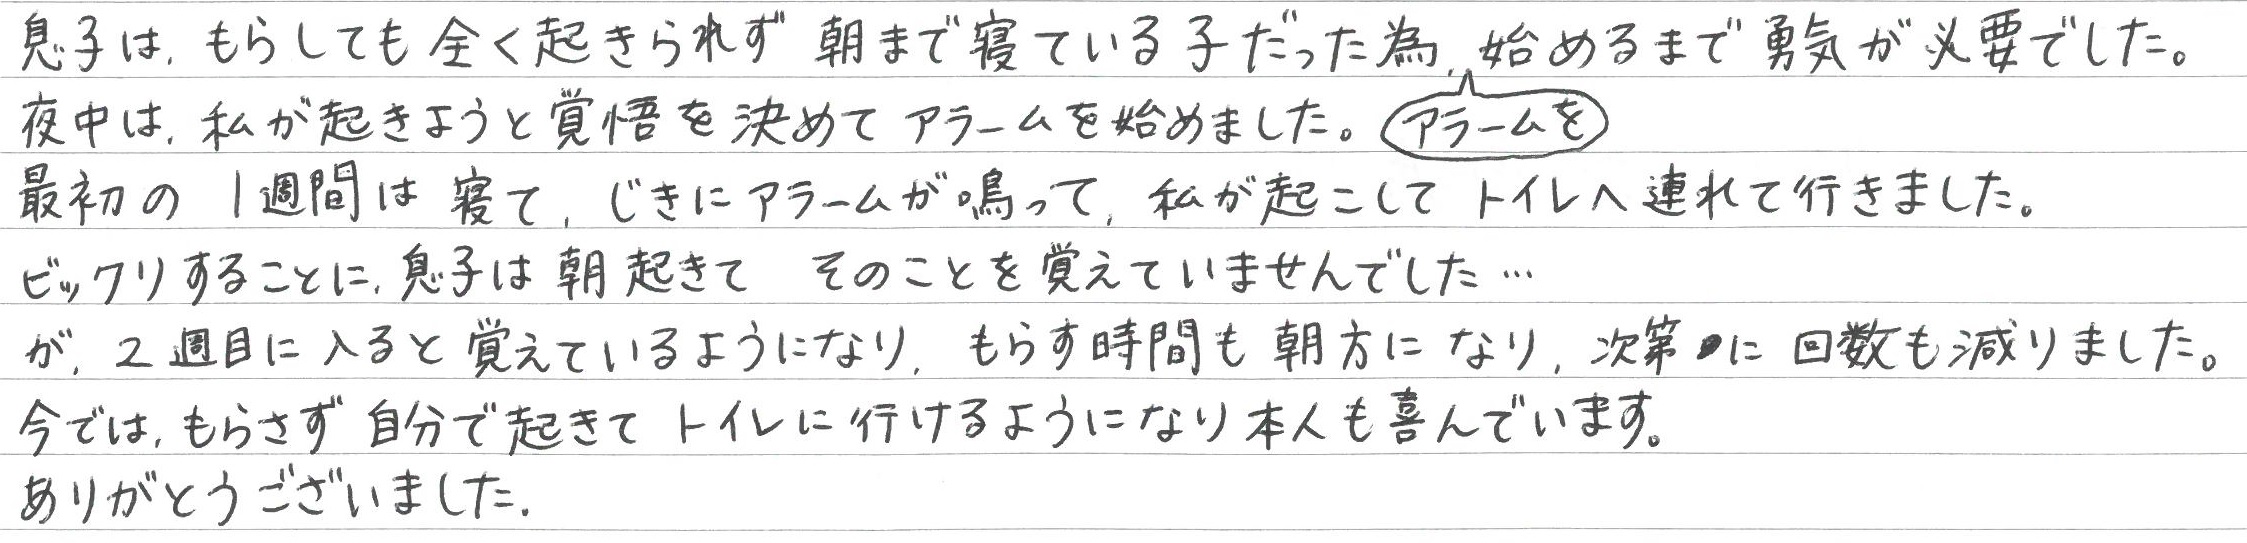 息子は、もらしても全く起きられず 朝まで寝ている子だった為、アラームを始めるまで勇気が必要でした。
夜中は、私が起きようと覚悟を決めて アラームを始めました。
最初の 1週間は 寝て、じきにアラームが鳴って、私が起こして トイレへ連れて行きました。
ビックリすることに、息子は朝起きて そのことを覚えていませんでした…
が、2週目に入ると覚えているようになり、もらす時間も朝方になり、次第に 回数も減りました。
今では、もらさず 自分で起きて トイレに行けるようになり本人も喜んでいます。
ありがとうございました.